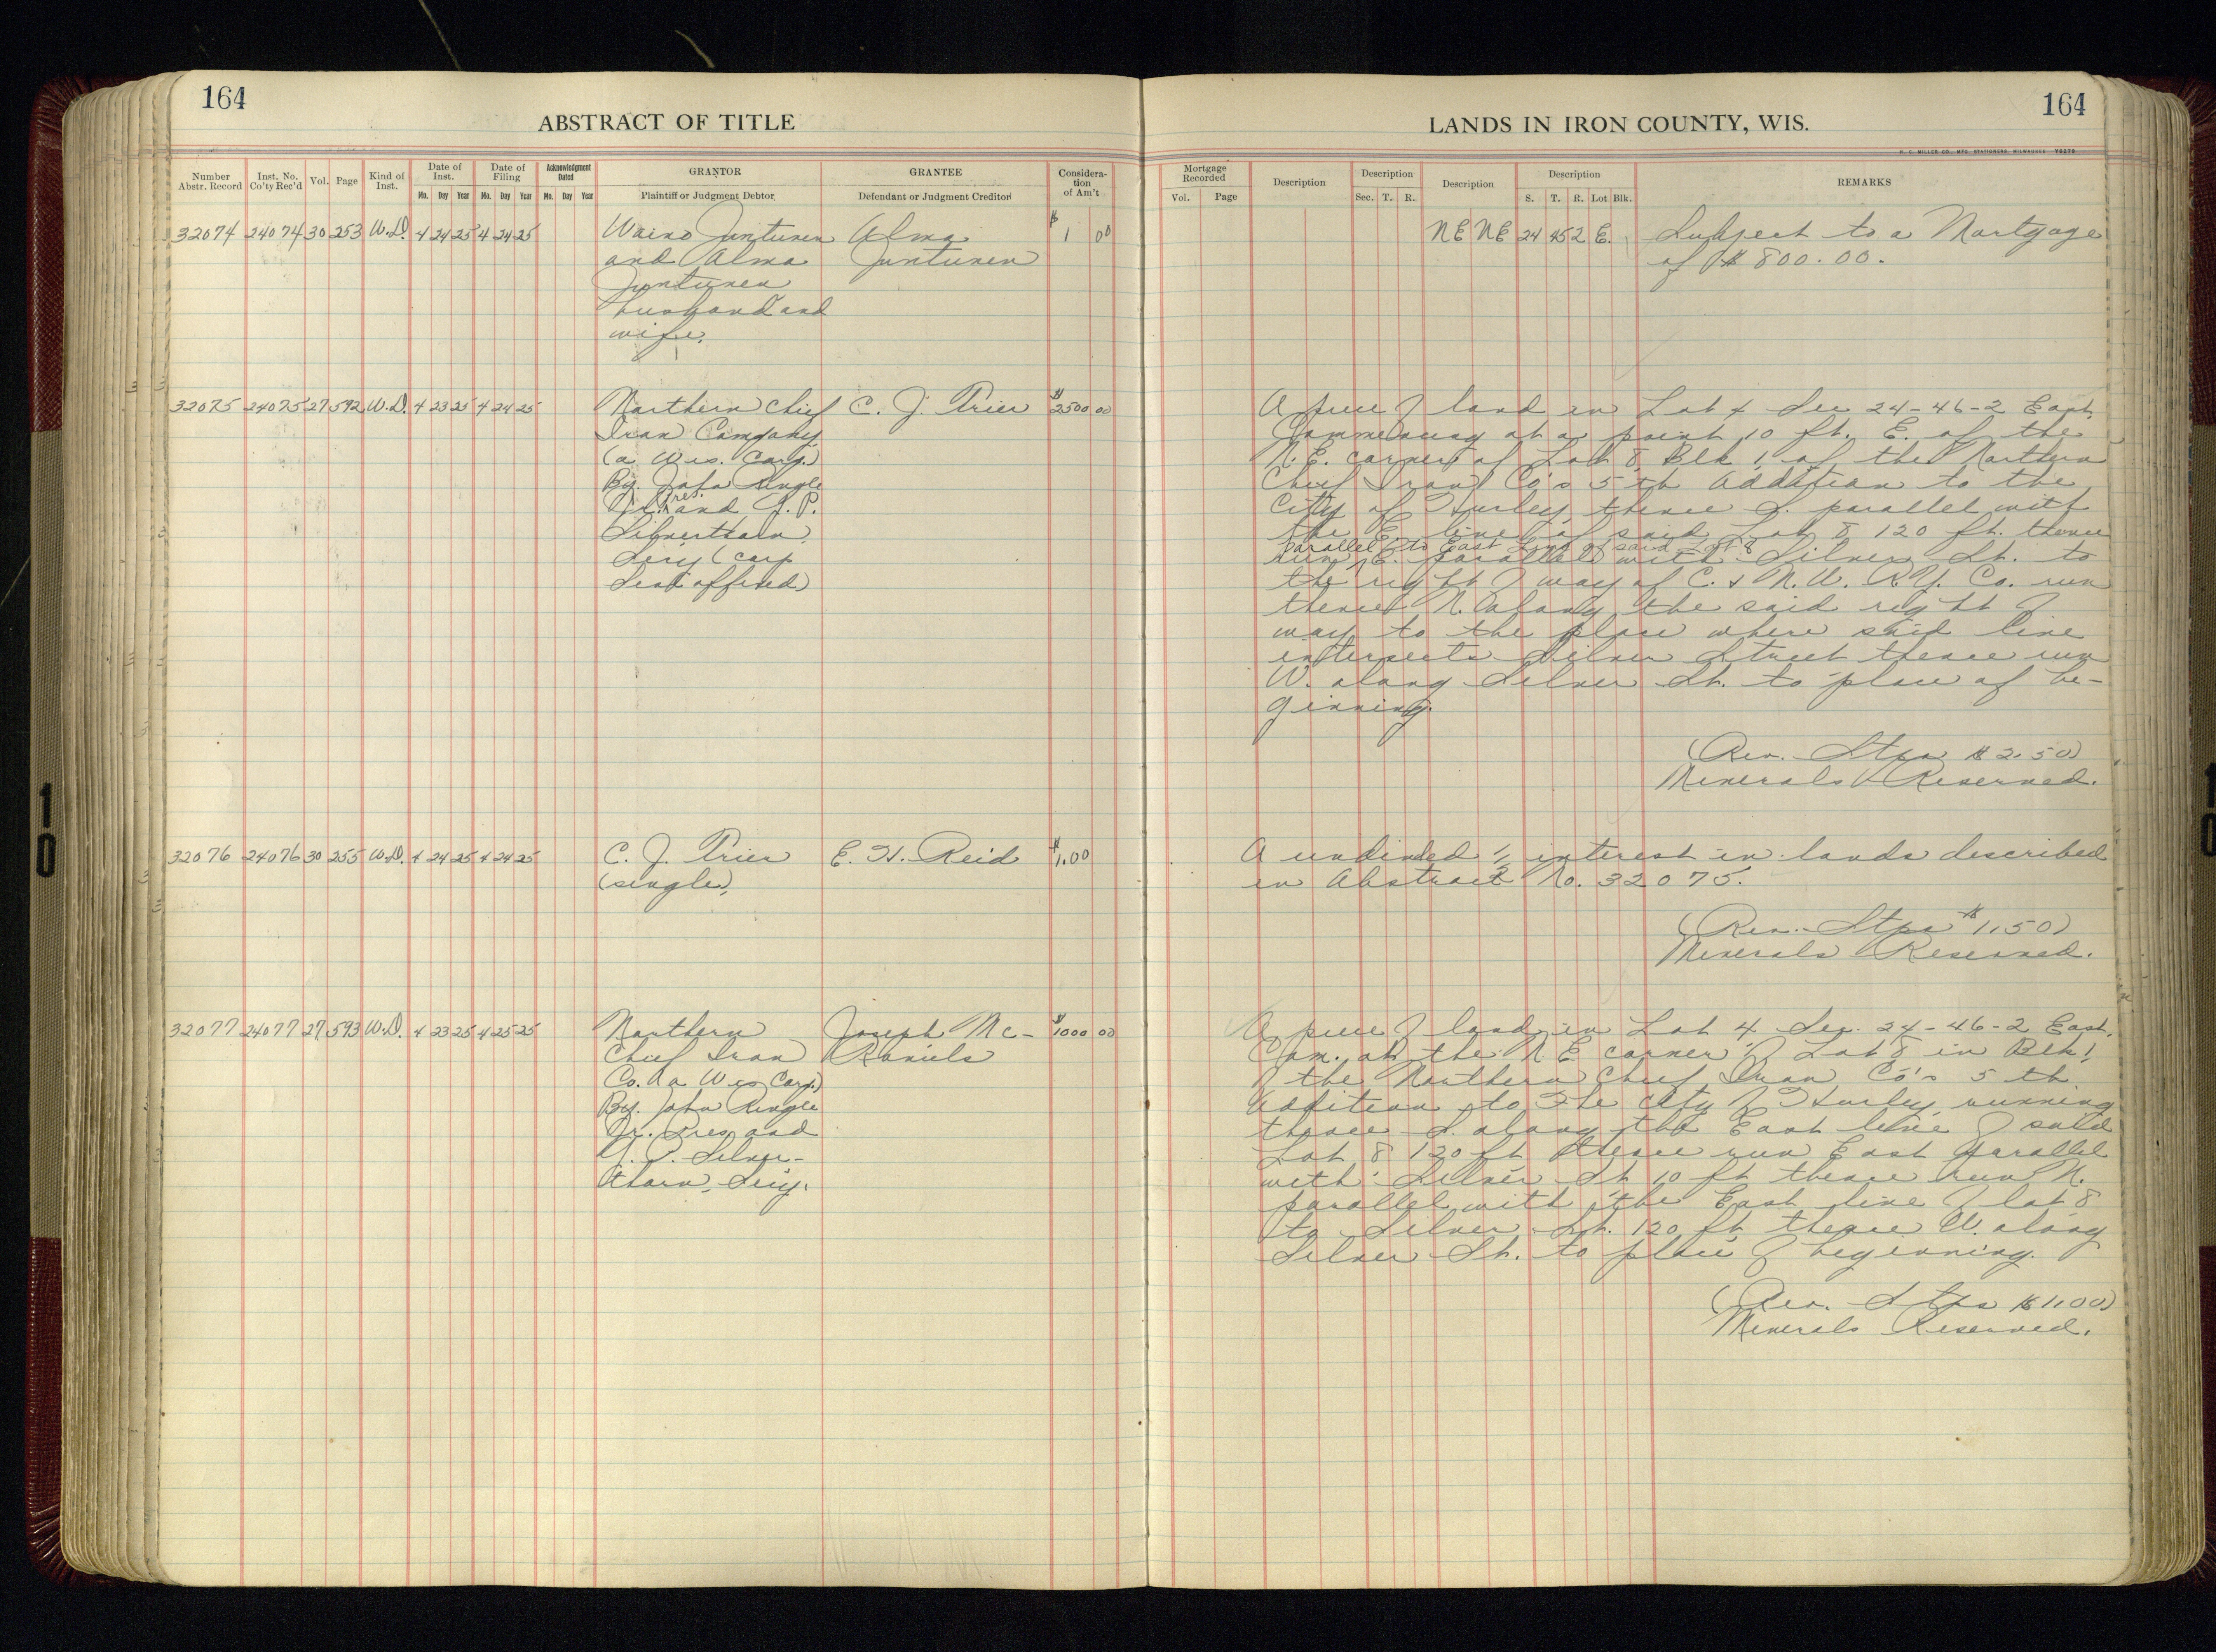 164
ABSTRACT OF TITLE
Number Abstr. Record
Inst. No. Co'ty Rec'd
Vol.
Page
Kind of Inst.
Date of Inst.
Mo. Day Year
Date of Filing
Mo. Day Year
Acknowledgment Dated
Mo. Day Year
GRANTOR
Plaintiff or Judgment Debtor
GRANTEE
Defendant or Judgment Creditor
Considera-
tion
of Am't
32074 24074 30 253 W.D. 4 24 25 4 24 25 Waino Juntunen Alma $ 1 00
and Alma Juntunen
Juntunen
husband and
wife.
32075 24075 27 592 W.D. 4 23 25 4 24 25 Northern Chief C. J. Prier $ 2500 00
Iron Company
(a Wis. Corp.)
By. John Ringle
Jr. Pres. and J. P.
Silverthorn
Secy (Corp
Seal affixed)
32076 24076 30 255 W.D. 4 24 25 4 24 25 C. J. Prier E. H. Reid $ 1.00
(single)
32077 24077 27 593 W.D. 4 23 25 4 25 25 Northern Joseph Mc- $ 1000 00
Chief Iron Raniels
Co. (a Wis Corp.)
By. John Ringle
Jr. Pres and
Silver-
thorn, Secy.
164
LANDS IN IRON COUNTY, WIS.
H. C. MILLER CO., MFG. STATIONERS, MILWAUKEE
Mortgage Recorded
Vol. Page
Description
Description
Sec. T. R.
Description
Description
S. T. R. Lot Blk.
REMARKS
NE NE 24 45 2 E. Subject to a Mortgage
of $800.00.
A piece of land in Lot 4 Sec 24-46-2 East
Commencing at a point 10 ft. E. of the
N.E. corner of Lot 8, Blk 1, of the Northern
Chief Iron Co's 5th Addition to the
City of Hurley, thence S. parallel with
the E. line of said Lot 8 120 ft. thence
parallel to East line of said Lot 8
run E. parallel with Silver St. to
the right of way of C. & N. W. R.Y. Co. run
thence N. along the said right of
way to the place where said line
intersects Silver Street thence run
W. along Silver St. to place of be-
ginning.
(Rev. Stps $2.50)
Minerals Reserved.
A undivided 1/2 interest in lands described
in Abstract No. 32075.
(Rev. Stps $1.50)
Minerals Reserved.
A piece of land in Lot 4 Sec. 24-46-2 East.
Com. at the N E corner of Lot 8 in Blk 1,
of the Northern Chief Iron Co's 5 th
Addition to The City of Hurley, running
thence S. along the East line of said
Lot 8 120 ft thence run East parallel
with Silver St 10 ft thence run N.
parallel with the East line of lot 8
to Silver St. 120 ft thence W. along
Silver St. to place of beginning.
(Rev. Stps $1.00)
Minerals Reserved.
10